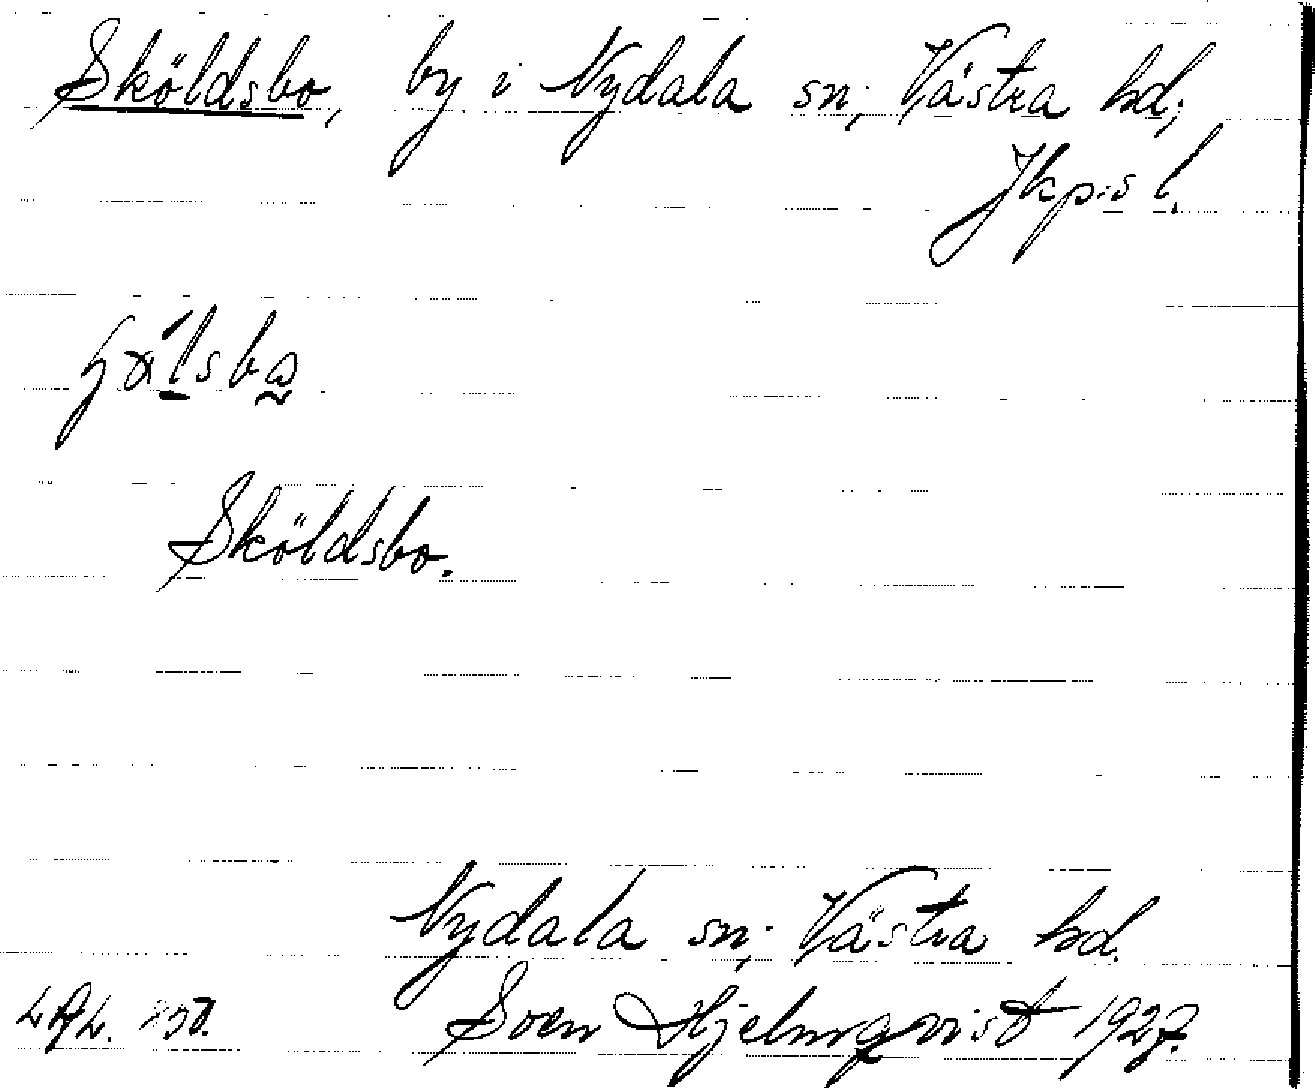 Sköldsbo, by i Nydala sn, Västra hd;
Jkp:s l.
Sköldsbo.
Nydala sn, Västra hd.
Sven Hjelmqvist 1927.